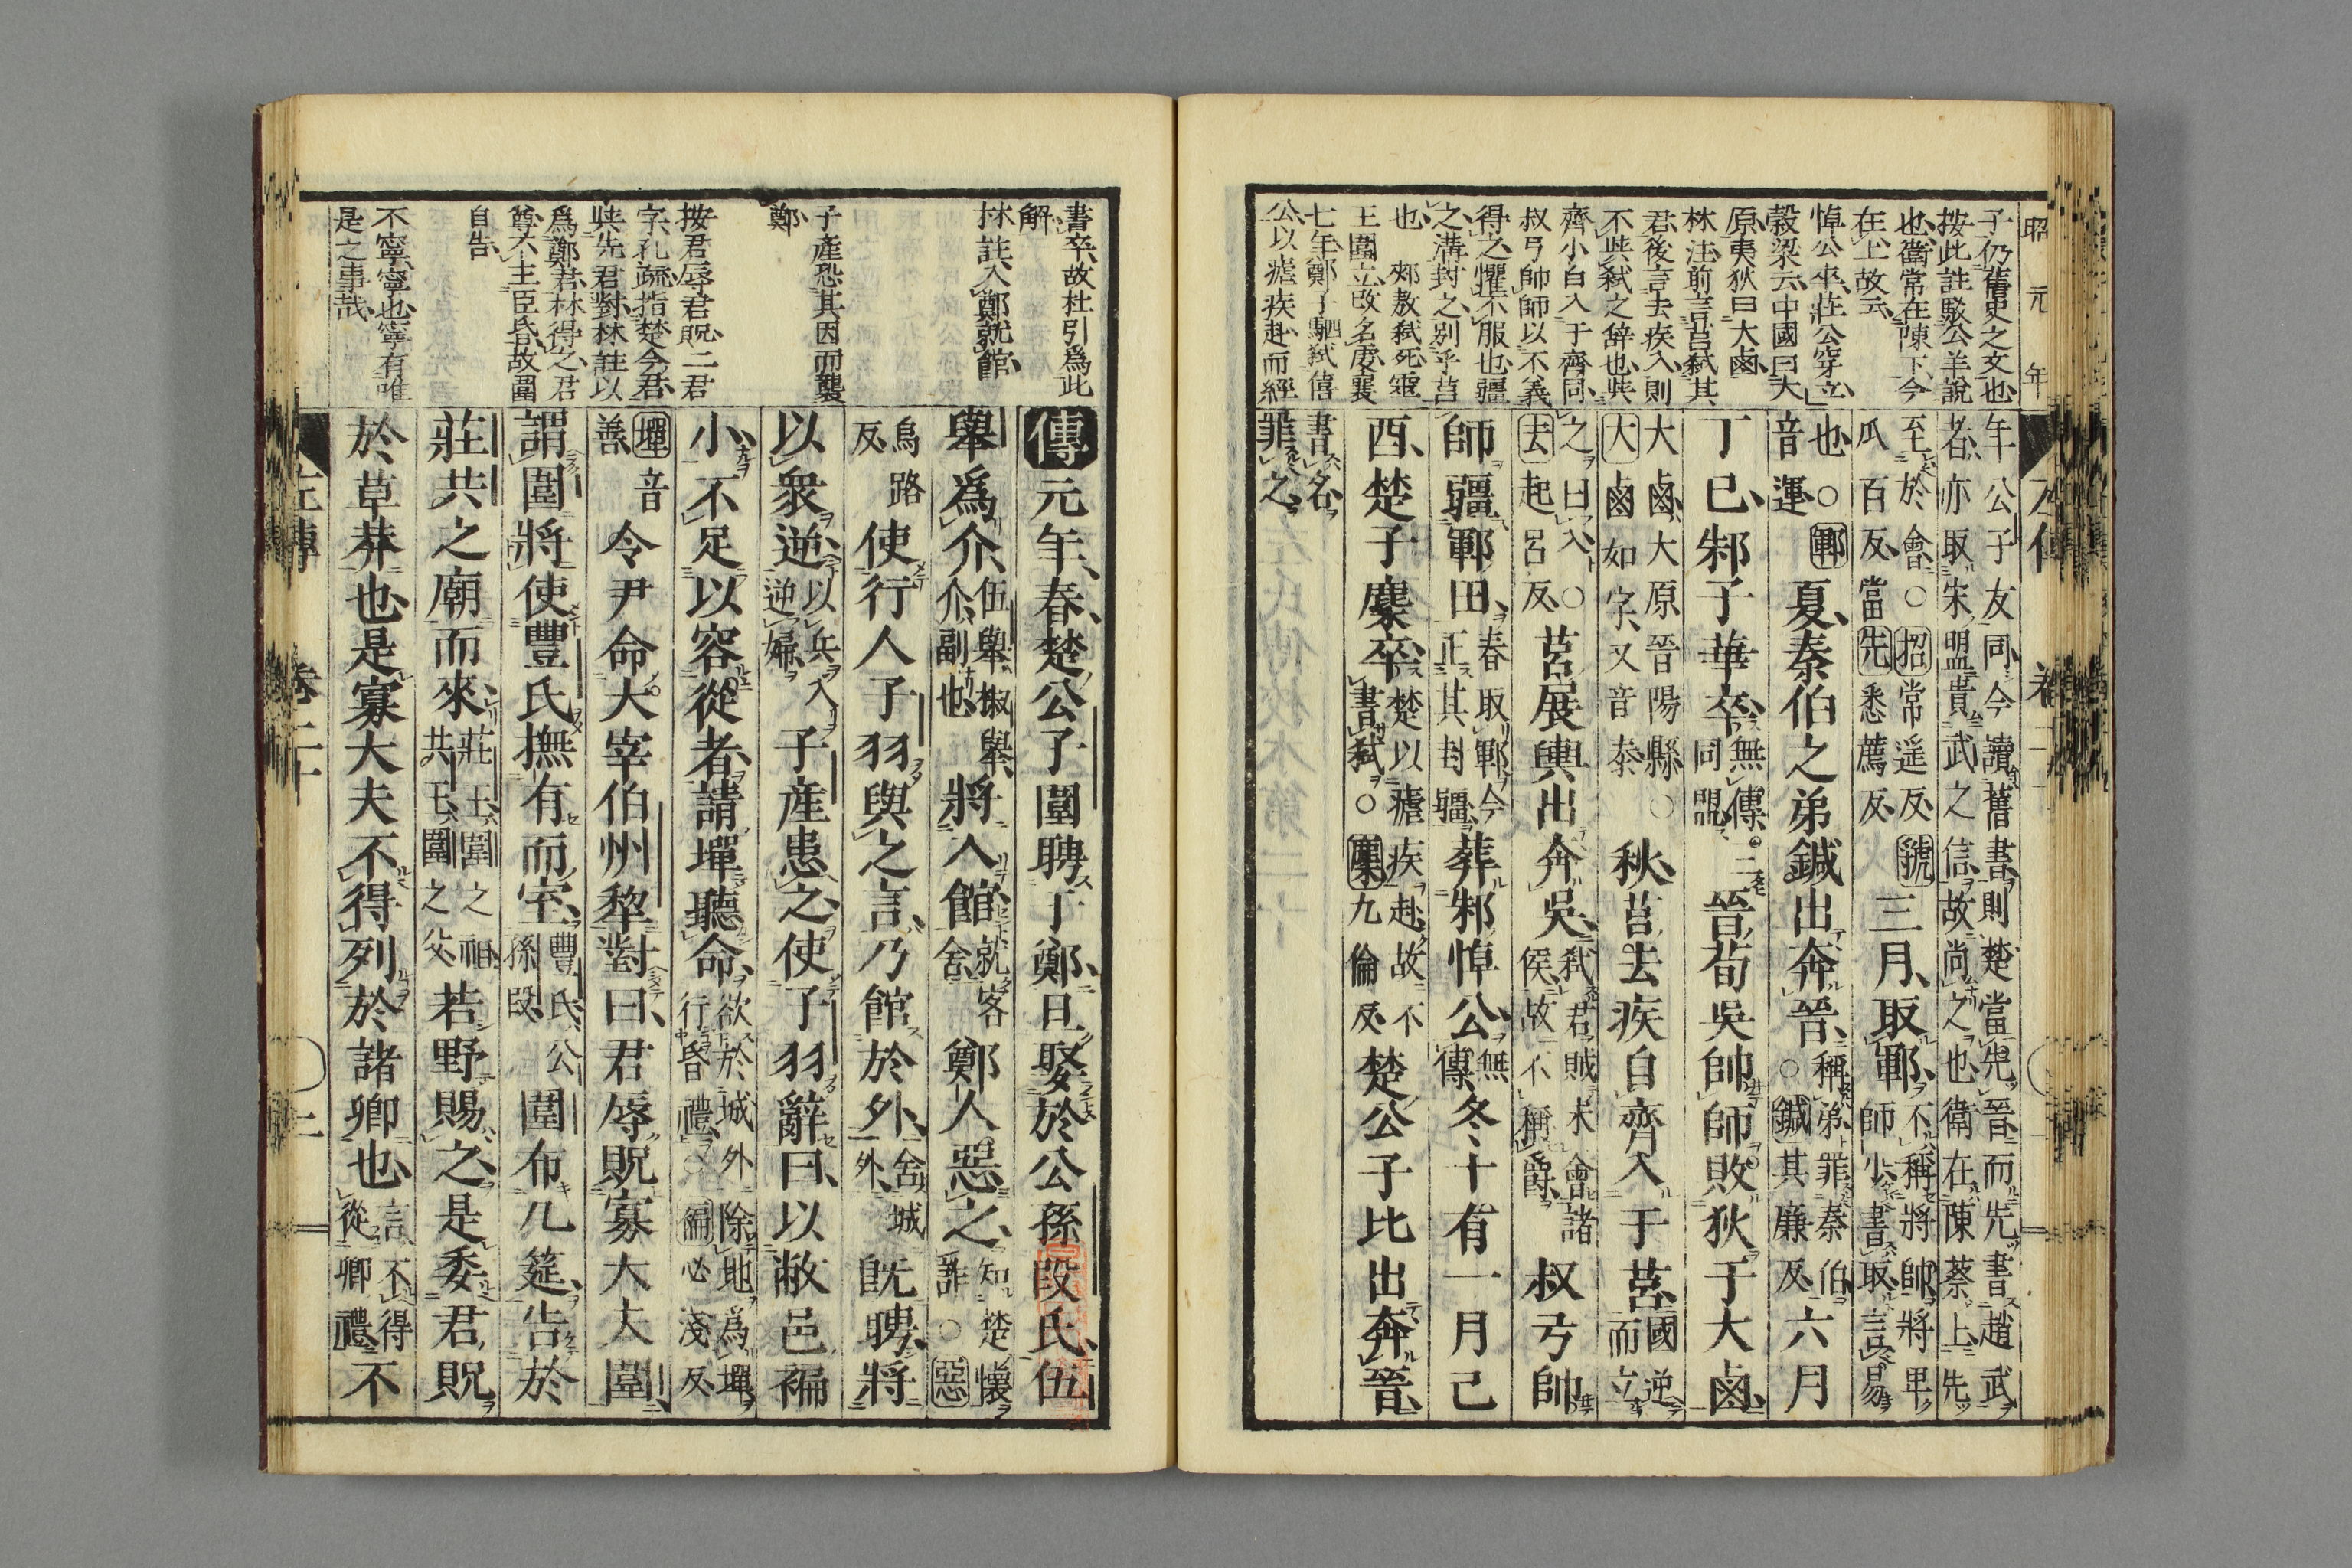 昭元年
子仍舊史之文也
按此註駁公羊說
也衛常在陳下今
在上故云
悼公卒莊公穿立
穀梁云中國曰大
原夷狄曰大鹵
林注前言莒弑其
君後言去疾入則
不與弑之辭也與
齊小白入于齊同
叔弓帥師以不義
得之懼不服也疆
之溝封之別乎莒
也 郟敖弑死虔
王圍立改名虔襄
七年鄭子駟弑僖
公以瘧疾赴而經
年公子友同今讀舊書則楚當先晉而先書趙武
者亦取宋盟貴武之信故尚之也衛在陳蔡上先
至於會○招常遥反虢瓜百反當先悉薦反三月取鄆不稱將帥將卑師少書取言易
也○鄆音運夏秦伯之弟鍼出奔晉稱弟罪秦伯○鍼其廉反六月
丁巳邾子華卒無傳三同盟晉荀吳帥師敗狄于大鹵
大鹵大原晉陽縣○大鹵如字又音泰秋莒去疾自齊入于莒國逆而立
之曰入○去起呂反莒展輿出奔吳弑君賊未會諸侯故不稱爵叔弓帥
師疆鄆田春取鄆今正其封疆葬邾悼公無傳冬十有一月己
酉楚子麇卒楚以瘧疾赴故不書弑○麇九倫反楚公子比出奔晉
書名罪之
書卒故杜引爲此
解
林註入鄭就館
子產恐其因而襲
鄭
按君辱君貺二君
字孔疏指楚今君
與先君對林註以
爲鄭君林得之君
尊不主臣昏故圍
自告
不寧寧也寧有唯
是之事哉
傳元年春楚公子圍聘于鄭且娶於公孫段氏伍
舉爲介伍舉椒舉介副也將入館就客舍鄭人惡之知楚懷詐○惡
烏路反使行人子羽與之言乃館於外舍城外既聘將
以衆逆以兵入逆婦子產患之使子羽辭曰以敝邑褊
小不足以容從者請墠聽命欲於城外除地爲墠行昏禮○褊必淺反
墠音善令尹命大宰伯州犂對曰君辱貺寡大夫圍
謂圍將使豐氏撫有而室豐氏公孫段圍布几筵告於
莊共之廟而來莊王圍之祖共王圍之父若野賜之是委君貺
於草莽也是寡大夫不得列於諸卿也言不得從卿禮不
左傳 卷二十 二